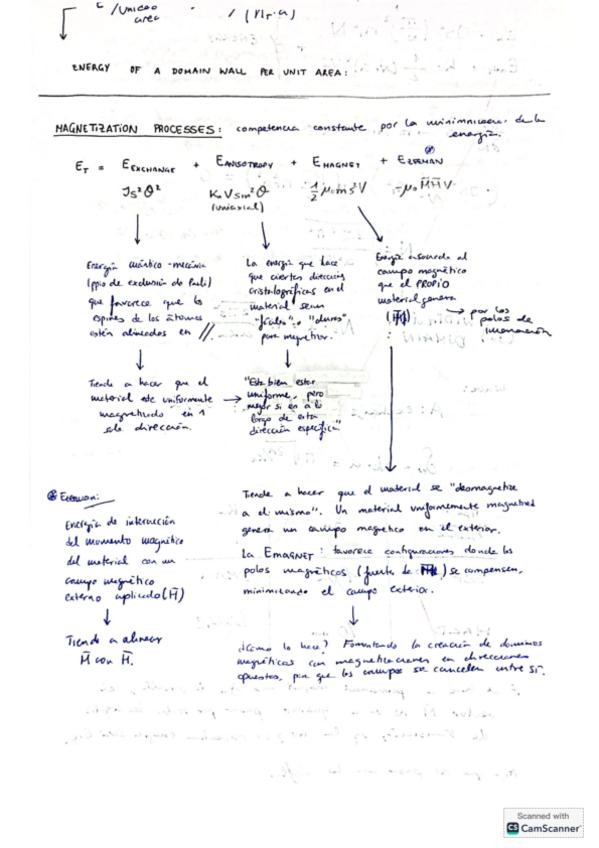 /unidad
area
ENERGY OF A DOMAIN WALL PER UNIT AREA:
MAGNETIZATION PROCESSES: competencia constante por la minimización de la
energía.
E_T = E_EXCHANGE + E_ANISOTROPY + E_MAGNET + E_ZEEMAN
JS²θ² K_u V sin²θ ½ μ₀ m_s² V -μ₀ M̄ H̄ V
(uniaxial)
Energía cuántico-mecánica
(ppio de exclusión de Pauli)
que favorece que los
espines de los átomos
estén alineados en //.
Tiende a hacer que el
material esté uniformemente
magnetizado en 1
sola dirección.
La energía que hace
que ciertas direcciones
cristalográficas en el
material sean
"fáciles" o "duras"
para magnetizar.
"Está bien estar
uniforme, pero
mejor si es a lo
largo de esta
dirección específica"
Energía asociada al
campo magnético
que el PROPIO
material genera
→ por los
polos de
imanación
Tiende a hacer que el material se "desmagnetice
a él mismo". Un material uniformemente magnetizado
genera un campo magnético en el exterior.
La E_MAGNET: favorece configuraciones donde los
polos magnéticos (fuente de) se compensen,
minimizando el campo exterior.
¿Cómo lo hace? Fomentando la creación de dominios
magnéticos con magnetizaciones en direcciones
opuestas, para que los campos se cancelen entre sí.
Energía de interacción
del momento magnético
del material con un
campo magnético
externo aplicado (H̄)
Tiende a alinear
M̄ con H̄.
Scanned with
CS CamScanner